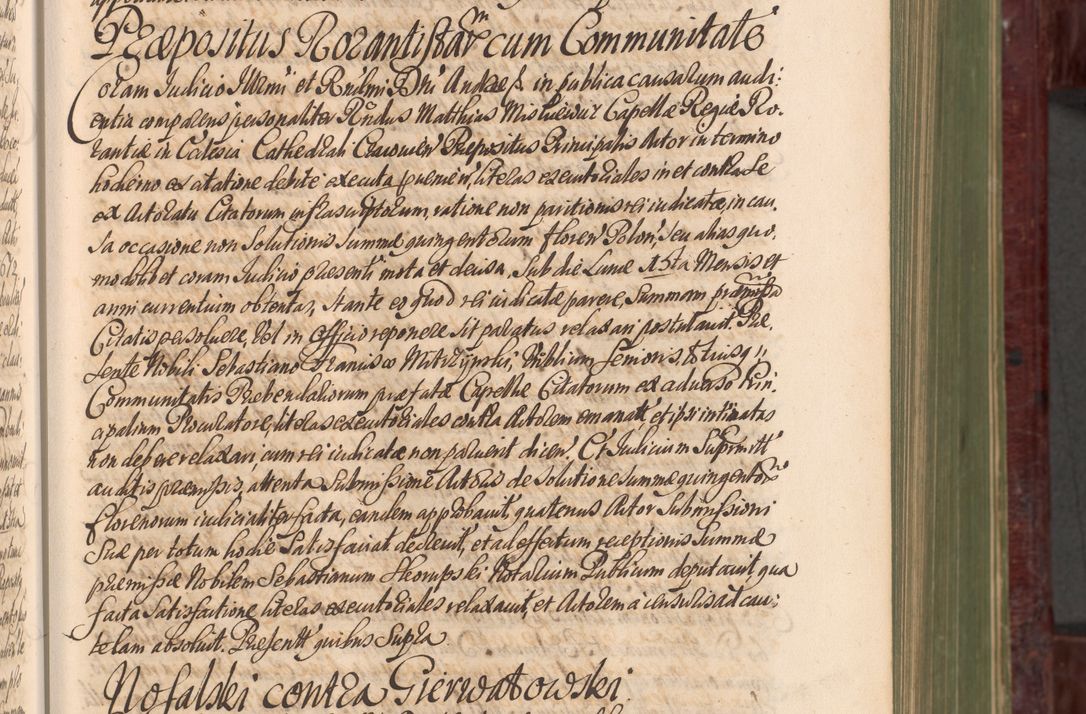 Præpositus Rorantistarm cum Communitate
Coram Judicio Illrmi et Rndmi Dni Andreæ in publica causarum audi:
entia comparens personaliter Rndus Matthias Misliewicz Capellæ Regiæ Ro:
rantiæ in Ecclesia Cathedrali Cracovien Præpositus Principalis Actor in termino
hodierno ex citatione debite executa proveniente, literas executoriales in et contra se
ex Actoratu Citatorum infrascriptorum, ratione non paritionis rei iudicatæ, in cau,
sa occasione non Solutionis Summæ quingentorum floren Polon, seu alias quo,
modolibet coram Judicio præsenti mota et decisa, Sub die Lunæ 15ta Mensis et
anni currentium obtentas, stante eo quod rei iudicatæ parere, Summam præmissa
Citatis persolvere, Vel in Officio reponere sit paratus relaxari postulavit. Præ,
sente Nobili Sebastiano Stanislao Mitrzynski, Vicilium Senioris totiusq
Communitatis Præbendariorum præfatæ Capellæ Citatorum ex adverso Prin,
cipalium Procuratore, literas executoriales contra Actorem emanatt, et ipsi intimatas
non debere relaxari, cum rei iudicatæ non paruerit dicen. Et Judicium Suprmitt
auditis præmissis, attenta Submissione Actoris de solutione summæ quingentor
florenorum iudicialiter facta, eandem approbavit, quatenus Actor Submissioni
Suæ per totum hodie Satisfaciat decrevit, et ad effectum receptionis Summæ
præmissæ Nobilem Sebastianum Skorupski Notarium Publicum deputavit, qua
facta Satisfactione literas executoriales relaxavit, et Actorem a censuris ad cau:
telam absolvit. Præsentt quibus Supra
Nofalski contra Gierwatowski.